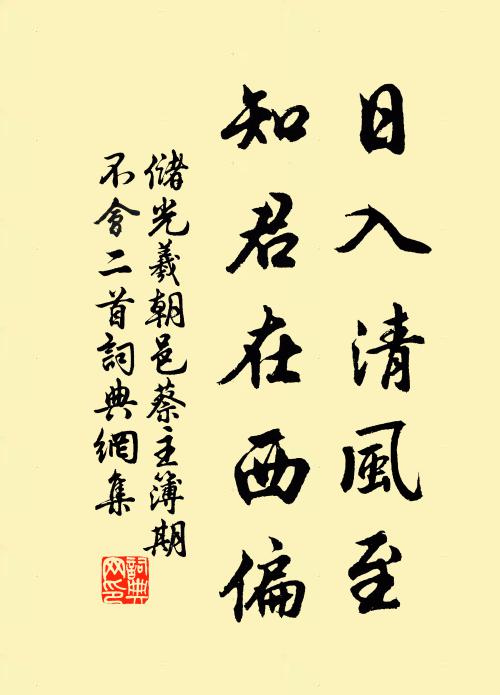 日入清風至
知君在西偏
儲光羲朝邑蔡主簿期
不會二首詞典網集
詞典
网印